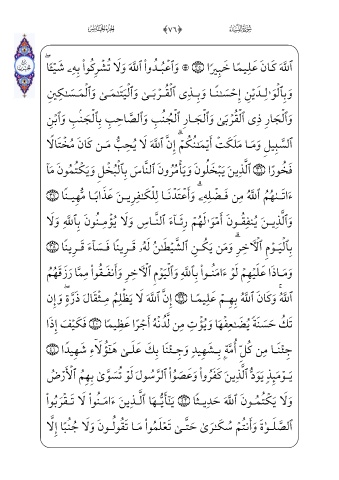 سُورَةُ النِّسَاءِ ﴿٧٦﴾ الجُزْءُ الخَامِسُ
ٱللَّهَ كَانَ عَلِيمًا خَبِيرًا ۝٣٥ ۞ وَٱعْبُدُوا۟ ٱللَّهَ وَلَا تُشْرِكُوا۟ بِهِۦ شَيْـًٔا ۖ
وَبِٱلْوَٰلِدَيْنِ إِحْسَـٰنًا وَبِذِى ٱلْقُرْبَىٰ وَٱلْيَتَـٰمَىٰ وَٱلْمَسَـٰكِينِ
وَٱلْجَارِ ذِى ٱلْقُرْبَىٰ وَٱلْجَارِ ٱلْجُنُبِ وَٱلصَّاحِبِ بِٱلْجَنۢبِ وَٱبْنِ
ٱلسَّبِيلِ وَمَا مَلَكَتْ أَيْمَـٰنُكُمْ ۗ إِنَّ ٱللَّهَ لَا يُحِبُّ مَن كَانَ مُخْتَالًا
فَخُورًا ۝٣٦ ٱلَّذِينَ يَبْخَلُونَ وَيَأْمُرُونَ ٱلنَّاسَ بِٱلْبُخْلِ وَيَكْتُمُونَ مَآ
ءَاتَىٰهُمُ ٱللَّهُ مِن فَضْلِهِۦ ۗ وَأَعْتَدْنَا لِلْكَـٰفِرِينَ عَذَابًا مُّهِينًا ۝٣٧
وَٱلَّذِينَ يُنفِقُونَ أَمْوَٰلَهُمْ رِئَآءَ ٱلنَّاسِ وَلَا يُؤْمِنُونَ بِٱللَّهِ وَلَا
بِٱلْيَوْمِ ٱلْـَٔاخِرِ ۗ وَمَن يَكُنِ ٱلشَّيْطَـٰنُ لَهُۥ قَرِينًا فَسَآءَ قَرِينًا ۝٣٨
وَمَاذَا عَلَيْهِمْ لَوْ ءَامَنُوا۟ بِٱللَّهِ وَٱلْيَوْمِ ٱلْـَٔاخِرِ وَأَنفَقُوا۟ مِمَّا رَزَقَهُمُ
ٱللَّهُ ۚ وَكَانَ ٱللَّهُ بِهِمْ عَلِيمًا ۝٣٩ إِنَّ ٱللَّهَ لَا يَظْلِمُ مِثْقَالَ ذَرَّةٍ ۖ وَإِن
تَكُ حَسَنَةً يُضَـٰعِفْهَا وَيُؤْتِ مِن لَّدُنْهُ أَجْرًا عَظِيمًا ۝٤٠ فَكَيْفَ إِذَا
جِئْنَا مِن كُلِّ أُمَّةٍۭ بِشَهِيدٍ وَجِئْنَا بِكَ عَلَىٰ هَـٰٓؤُلَآءِ شَهِيدًا ۝٤١
يَوْمَئِذٍ يَوَدُّ ٱلَّذِينَ كَفَرُوا۟ وَعَصَوُا۟ ٱلرَّسُولَ لَوْ تُسَوَّىٰ بِهِمُ ٱلْأَرْضُ
وَلَا يَكْتُمُونَ ٱللَّهَ حَدِيثًا ۝٤٢ يَـٰٓأَيُّهَا ٱلَّذِينَ ءَامَنُوا۟ لَا تَقْرَبُوا۟
ٱلصَّلَوٰةَ وَأَنتُمْ سُكَـٰرَىٰ حَتَّىٰ تَعْلَمُوا۟ مَا تَقُولُونَ وَلَا جُنُبًا إِلَّا